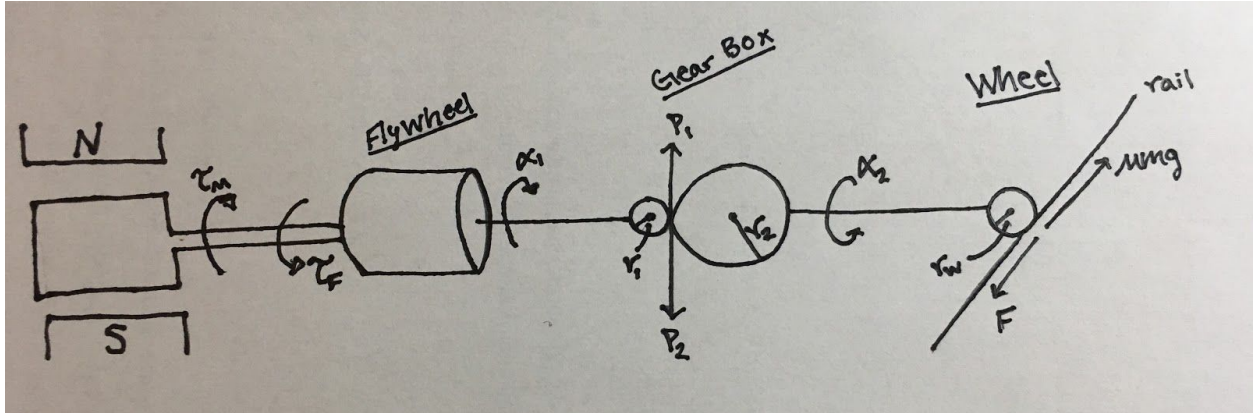 N
S
τM
τF
Flywheel
α1
Gear Box
P1
r1
r2
P2
α2
Wheel
rail
μmg
rw
F